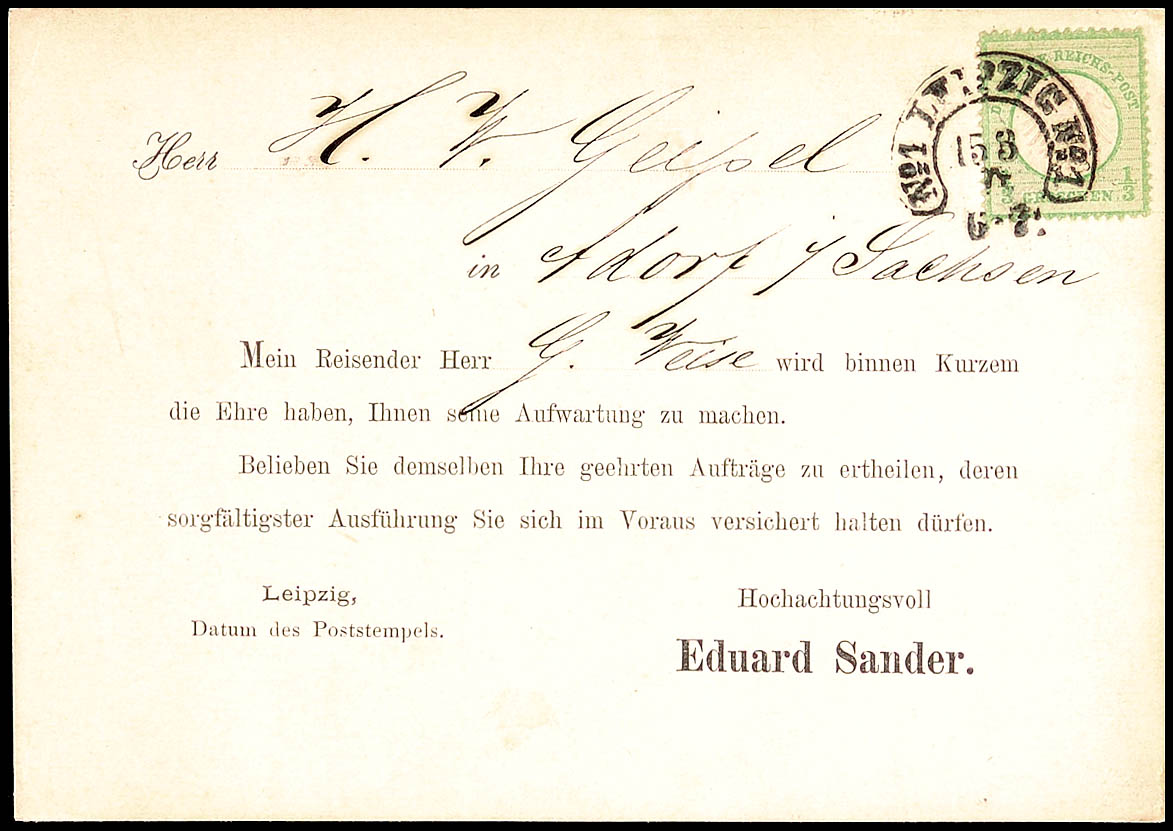 REICHS-POST
1/3 GROSCHEN 1/3
No1 LEIPZIG No1
15 8
6-7.
Herr H. W. Geipel
in Adorf i/ Sachsen
Mein Reisender Herr G. Weise wird binnen Kurzem
die Ehre haben, Ihnen seine Aufwartung zu machen.
Belieben Sie demselben Ihre geehrten Aufträge zu ertheilen, deren
sorgfältigster Ausführung Sie sich im Voraus versichert halten dürfen.
Leipzig,
Datum des Poststempels.
Hochachtungsvoll
Eduard Sander.